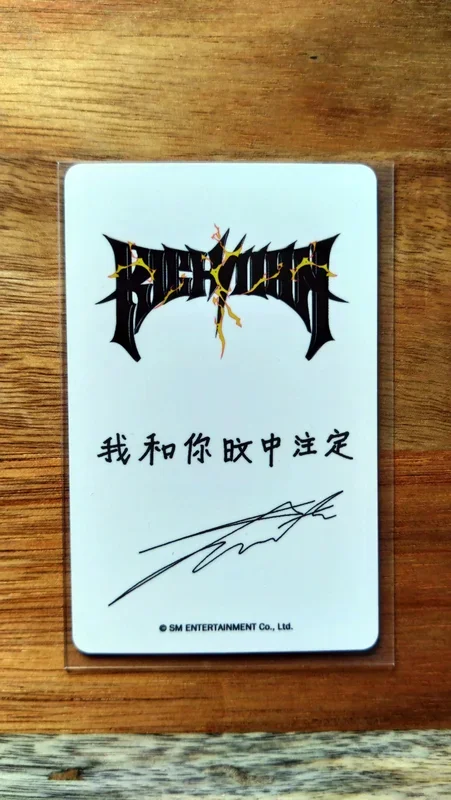 RICH MAN
我和你旼中注定
© SM ENTERTAINMENT Co., Ltd.